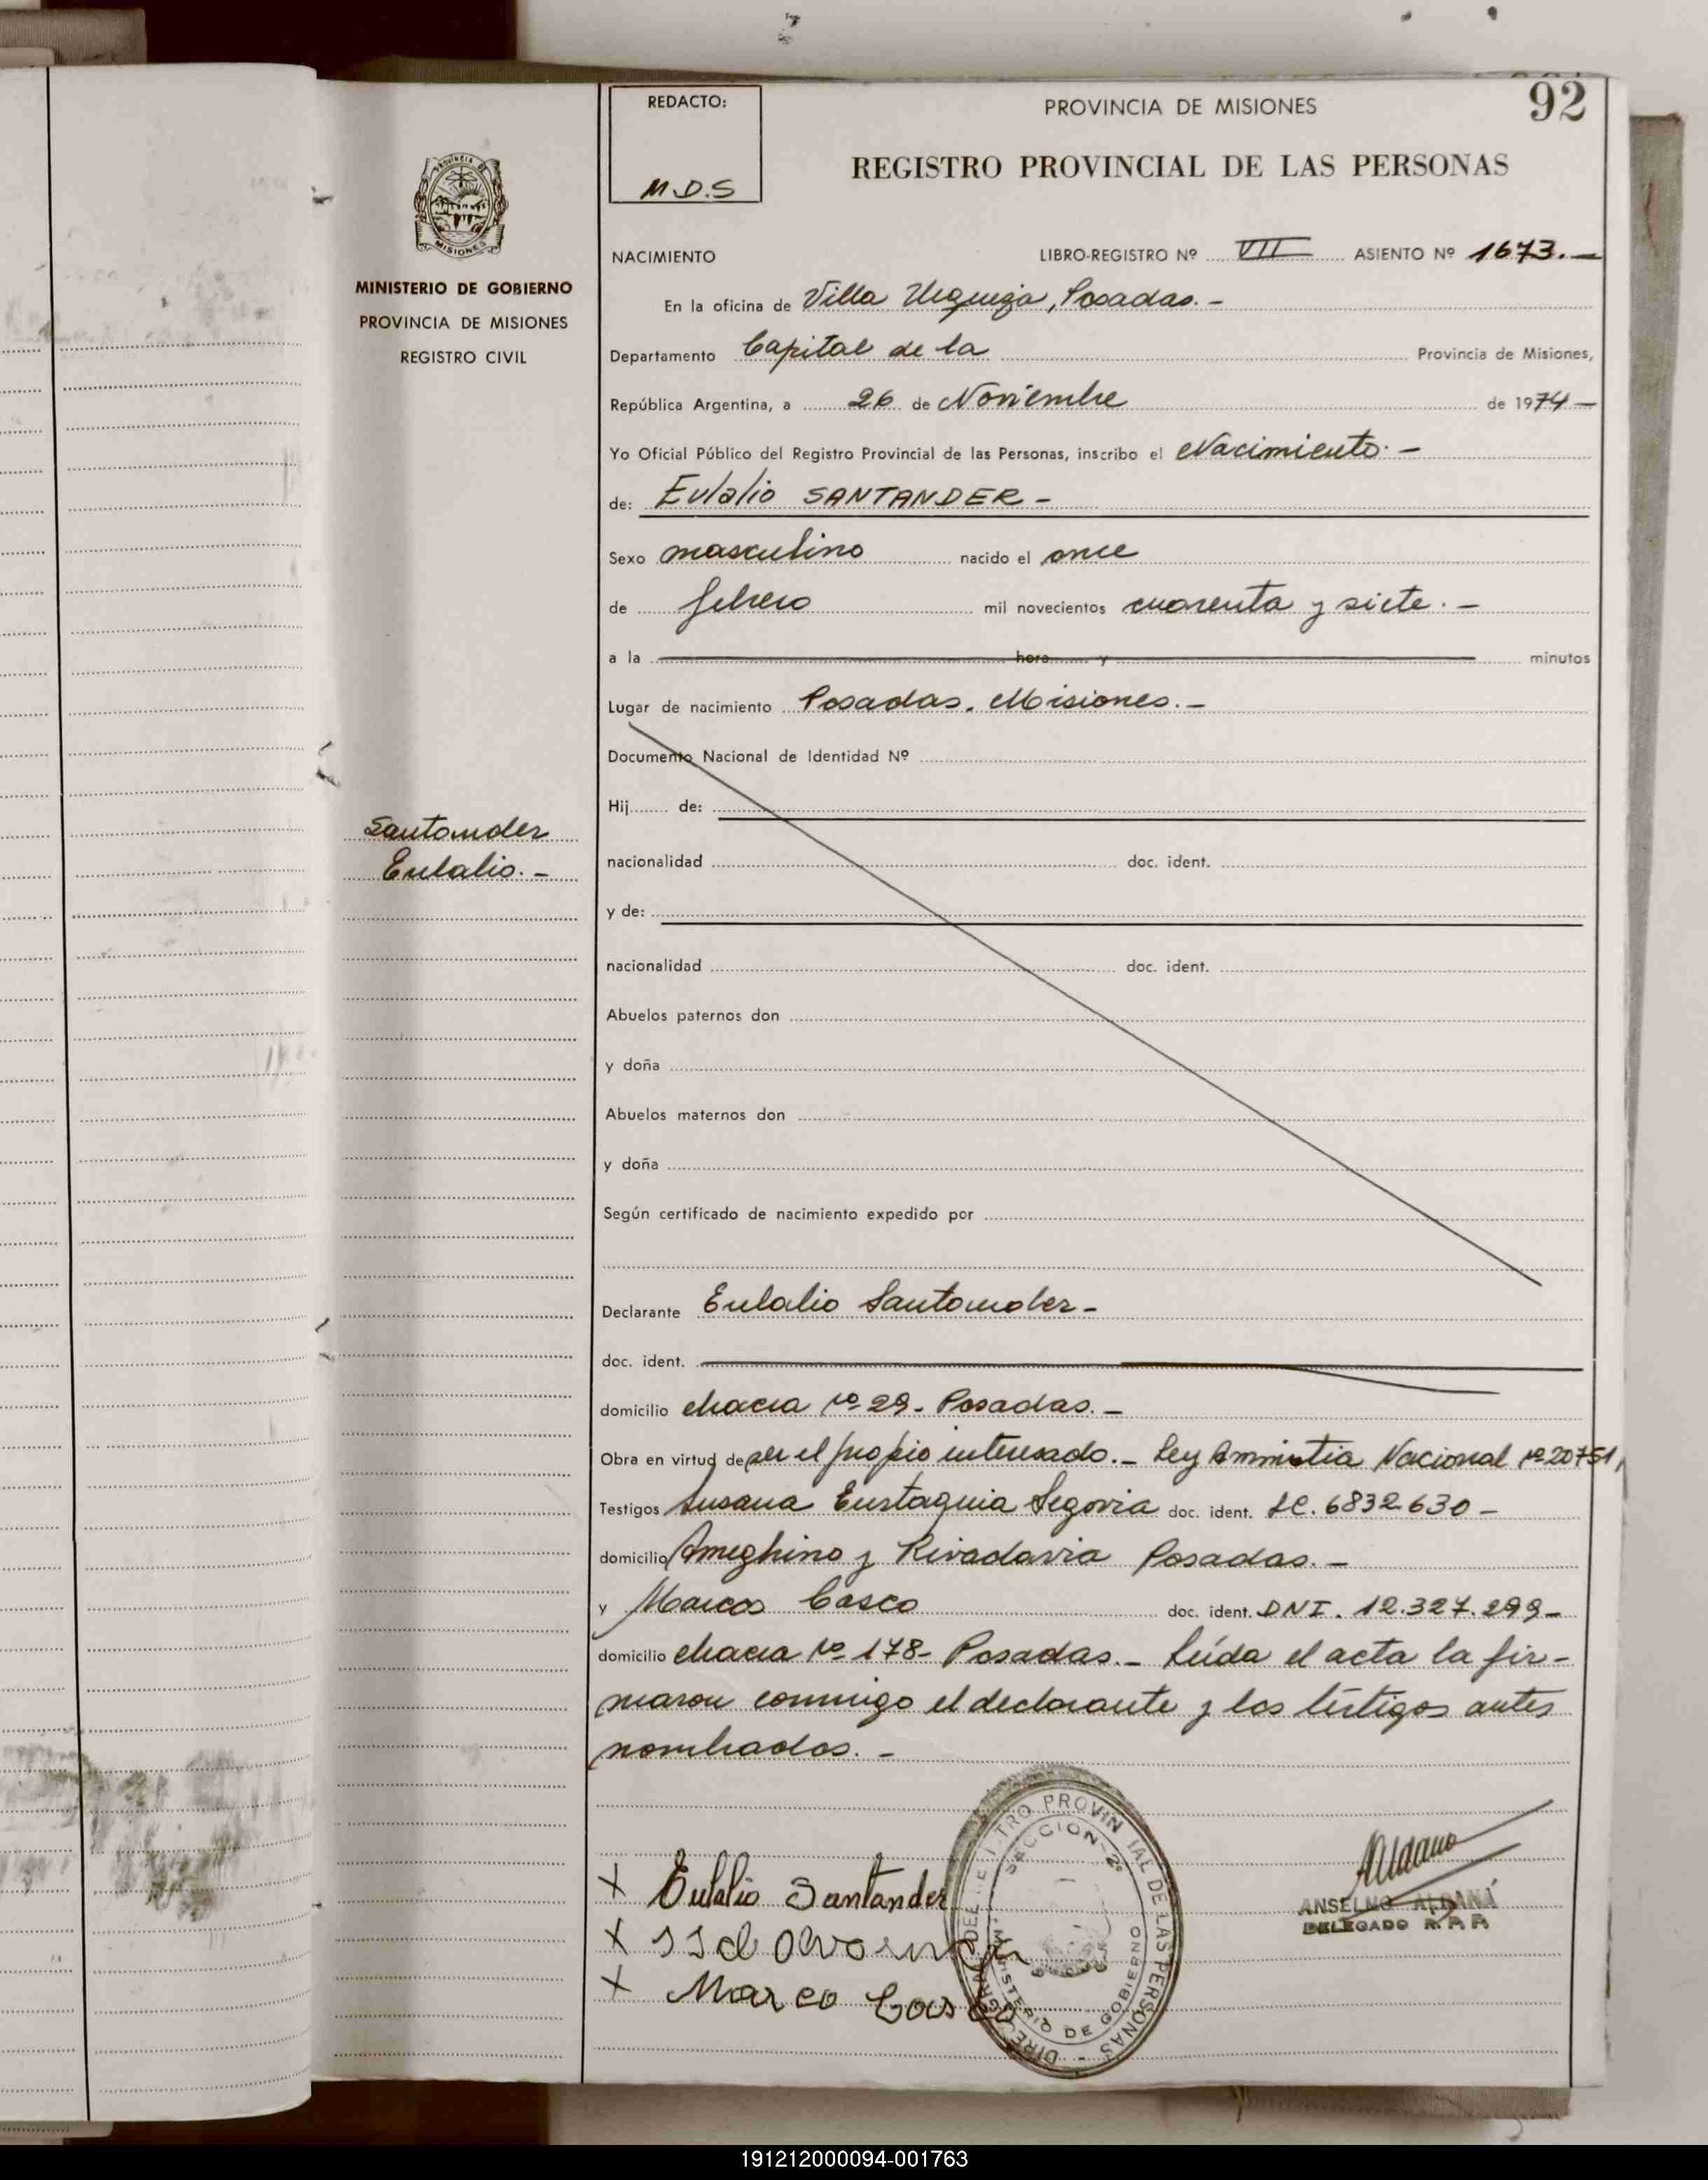 92
REDACTO:
M.D.S
PROVINCIA DE MISIONES
REGISTRO PROVINCIAL DE LAS PERSONAS
PROVINCIA DE
MISIONES
MINISTERIO DE GOBIERNO
PROVINCIA DE MISIONES
REGISTRO CIVIL
Santander
Eulalio. -
NACIMIENTO LIBRO-REGISTRO Nº VII ASIENTO Nº 1673. -
En la oficina de Villa Urquiza, Posadas. -
Departamento Capital de la Provincia de Misiones,
República Argentina, a 26 de Noviembre de 1974 -
Yo Oficial Público del Registro Provincial de las Personas, inscribo el Nacimiento. -
de: Eulalio SANTANDER -
Sexo masculino nacido el once
de febrero mil novecientos cuarenta y siete. -
a la hora y minutos
Lugar de nacimiento Posadas. Misiones. -
Documento Nacional de Identidad Nº
Hij de:
nacionalidad doc. ident.
y de:
nacionalidad doc. ident.
Abuelos paternos don
y doña
Abuelos maternos don
y doña
Según certificado de nacimiento expedido por
Declarante Eulalio Santander -
doc. ident.
domicilio chacra Nº 29 - Posadas. -
Obra en virtud de ser el propio interesado. - Ley Amnistia Nacional Nº 20751,
Testigos Susana Eustaquia Segovia doc. ident. LC. 6832630 -
domicilio Ameghino y Rivadavia Posadas. -
y Marcos Casco doc. ident. DNI. 12.327.299 -
domicilio chacra Nº 178 - Posadas. - Leída el acta la fir-
maron conmigo el declarante y los testigos antes
nombrados. -
X Eulalio Santander
X
X Marco Casco
PROVIN IAL DE LAS PERSONAS
SECCION - 2ª
MINISTERIO DE GOBIERNO
ANSELMO ALDANÁ
DELEGADO R.P.P.
191212000094-001763